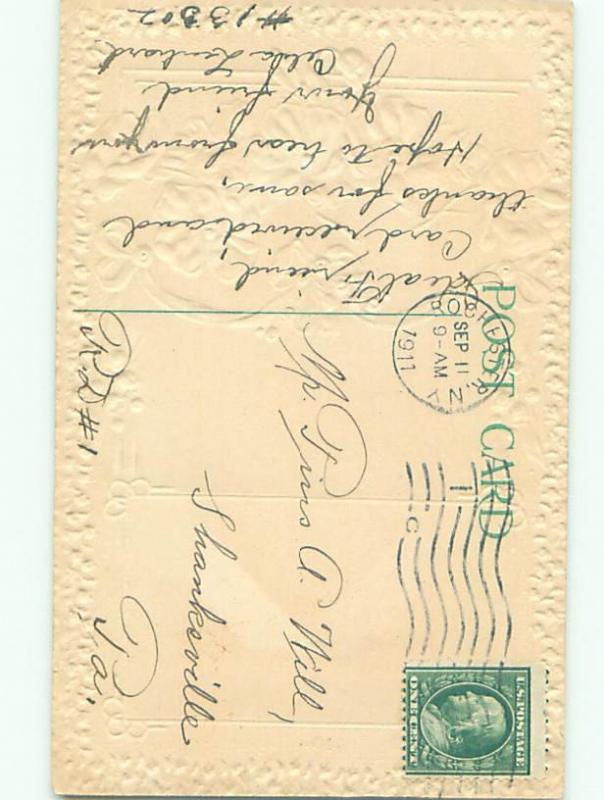 POST CARD
ROCHESTER
SEP 11
9-AM
1911
N.Y.
1
C
U.S. POSTAGE
ONE CENT
Dear Friend,
Card received and
thanks for same,
Hope to hear from you
Your friend
Celda Lenhart
#13302
Mr. Irvin A. Will,
Shanksville
Pa.
R.D #1